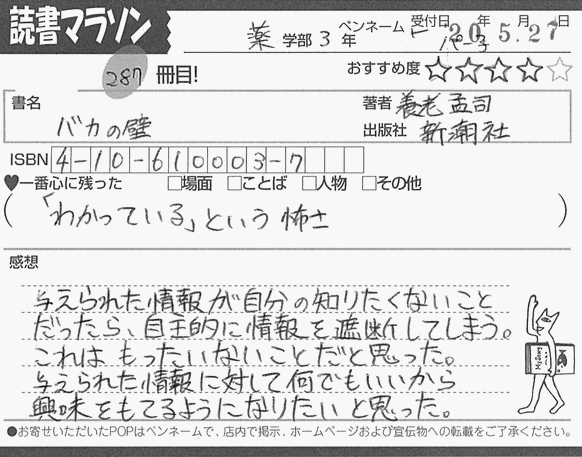 読書マラソン
薬 学部 3 年
ペンネーム パー子
受付日 20年 5.月27日
287 冊目!
おすすめ度 ☆☆☆☆☆
書名
バカの壁
著者 養老孟司
出版社 新潮社
ISBN 4-10-610003-7
♥一番心に残った □場面 □ことば □人物 □その他
(「わかっている」という怖さ)
感想
与えられた情報が自分の知りたくないこと
だったら、自主的に情報を遮断してしまう。
これはもったいないことだと思った。
与えられた情報に対して何でもいいから
興味をもてるようになりたいと思った。
●お寄せいただいたPOPはペンネームで、店内で掲示、ホームページおよび宣伝物への転載をご了承ください。